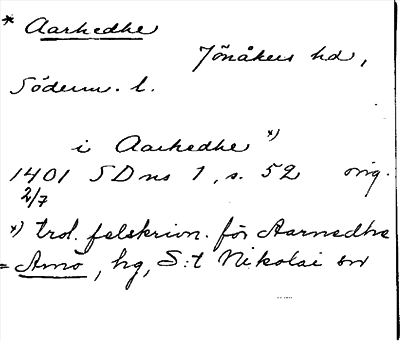 * Aarhedhe
Jönåkers hd,
Söderm. l.
i Aarhedhe x)
1401 SDns 1, s. 52 orig.
2/7
x) trol. felskrivn. för Aarnedhe
= Arnö, hg, S:t Nikolai sn